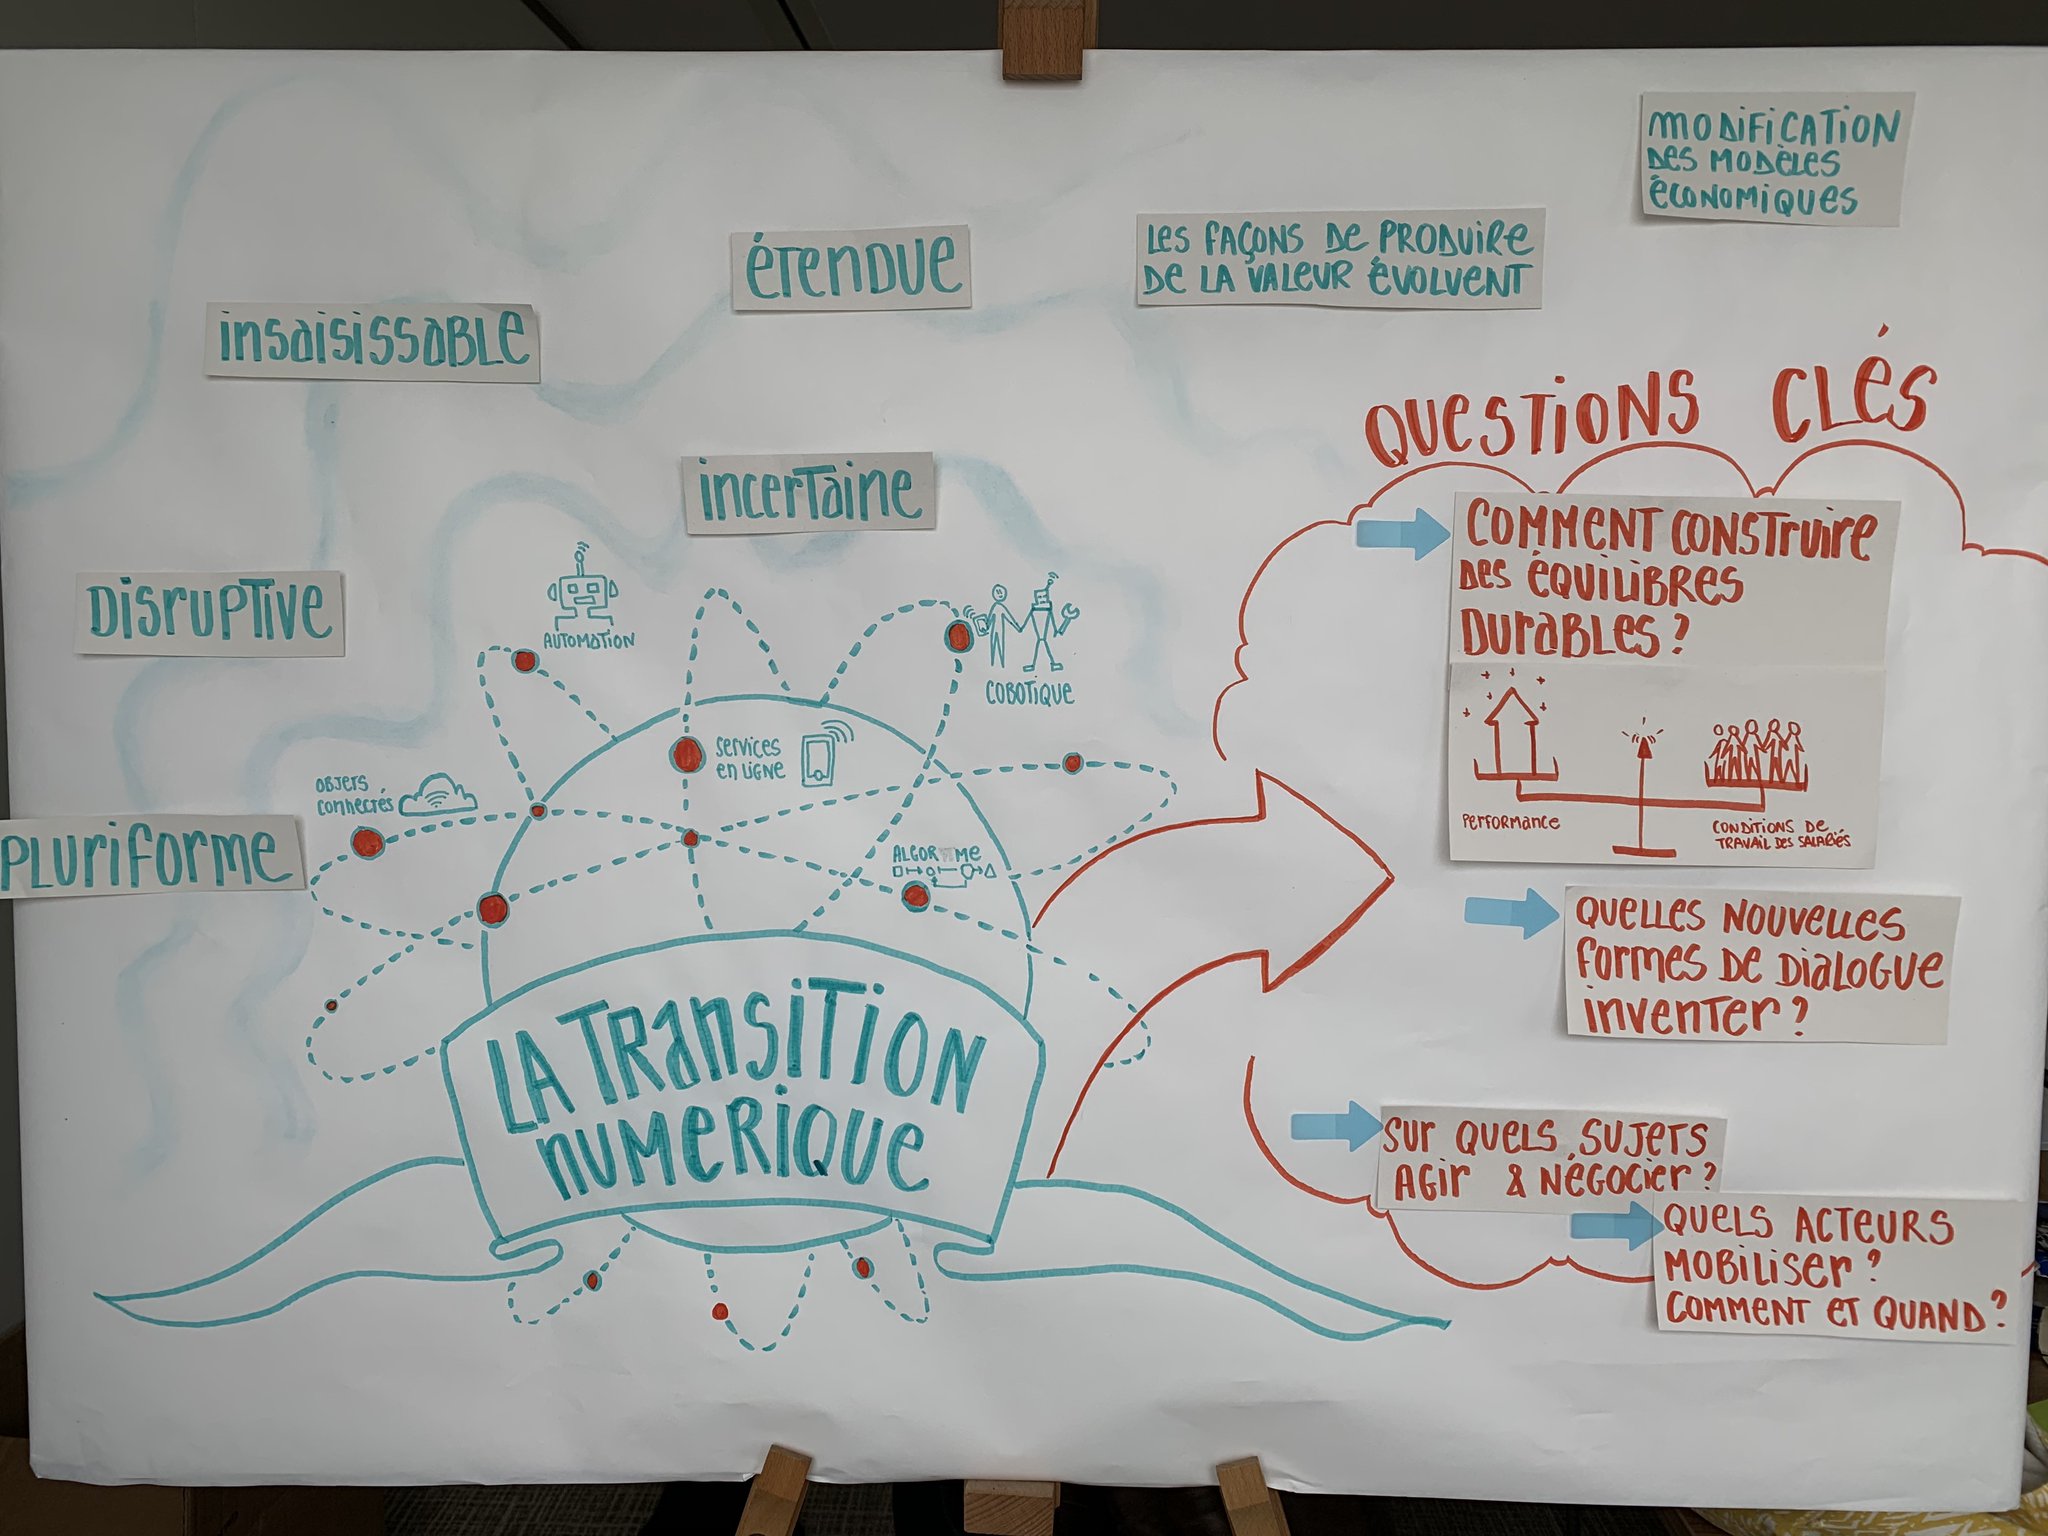 MODIFICATION
DES MODÈLES
ÉCONOMIQUES
LES FAÇONS DE PRODUIRE
DE LA VALEUR ÉVOLVENT
ÉTENDUE
insaisissable
incertaine
DISRUPTIVE
PLURIFORME
AUTOMATION
COBOTIQUE
SERVICES
EN LIGNE
OBJETS
CONNECTÉS
ALGORITME
LA TRANSITION
NUMERIQUE
QUESTIONS CLÉS
COMMENT CONSTRUIRE
DES ÉQUILIBRES
DURABLES ?
PERFORMANCE
CONDITIONS DE
TRAVAIL DES SALARIÉS
QUELLES NOUVELLES
FORMES DE DIALOGUE
INVENTER ?
SUR QUELS SUJETS
AGIR & NÉGOCIER ?
QUELS ACTEURS
MOBILISER ?
COMMENT ET QUAND ?